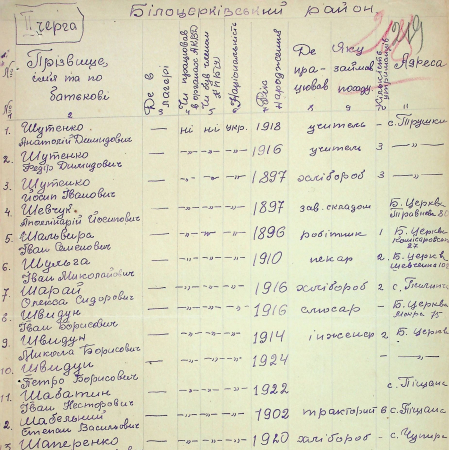 Білоцерківський район
II черга
№ Прізвище, ім'я та по батькові
Де в лагері
Чи працював в органах НКВД
Чи був членом
Національність
Рік народження
Де працював
Яку займав посаду
Кількість утриманців
Адреса
1. Шутенко Анатолій Демидович — ні ні укр. 1918 учитель - с. Трушки
2. Шутенко Федір Демидович — -"- -"- -"- 1916 учитель 3 —"—
3. Шутенко Йосип Іванович — -"- -"- -"- 1897 хлібороб 3 —"—
4. Шевчук Аполінарій Йосипович — -"- -"- -"- 1897 зав. складом - Б. Церква
5. Шальвира Іван — -"- -"- -"- 1896 робітник 1 Б. Церква 27
6. Шульга Іван Миколайович — -"- -"- -"- 1910 пекар 2 Б. Церква Шевченко
7. Шарай Олекса Сидорович — -"- -"- -"- 1916 хлібороб 2
8. Швидун Іван Борисович — -"- -"- -"- 1916 слюсар - Б. Церква 75
9. Швидун Микола Борисович — -"- -"- -"- 1914 інженер 2 Б. Церква
10. Швидун Петро Борисович — -"- -"- -"- 1924 - —"—
11. Шабатин Іван Несторович — -"- -"- -"- 1922 с. Піщана
2. Шабельний Степан Васильович — -"- -"- -"- 1902 тракторист 6 с. Піщана
13. Шаперенко — -"- -"- -"- 1920 хлібороб - с.